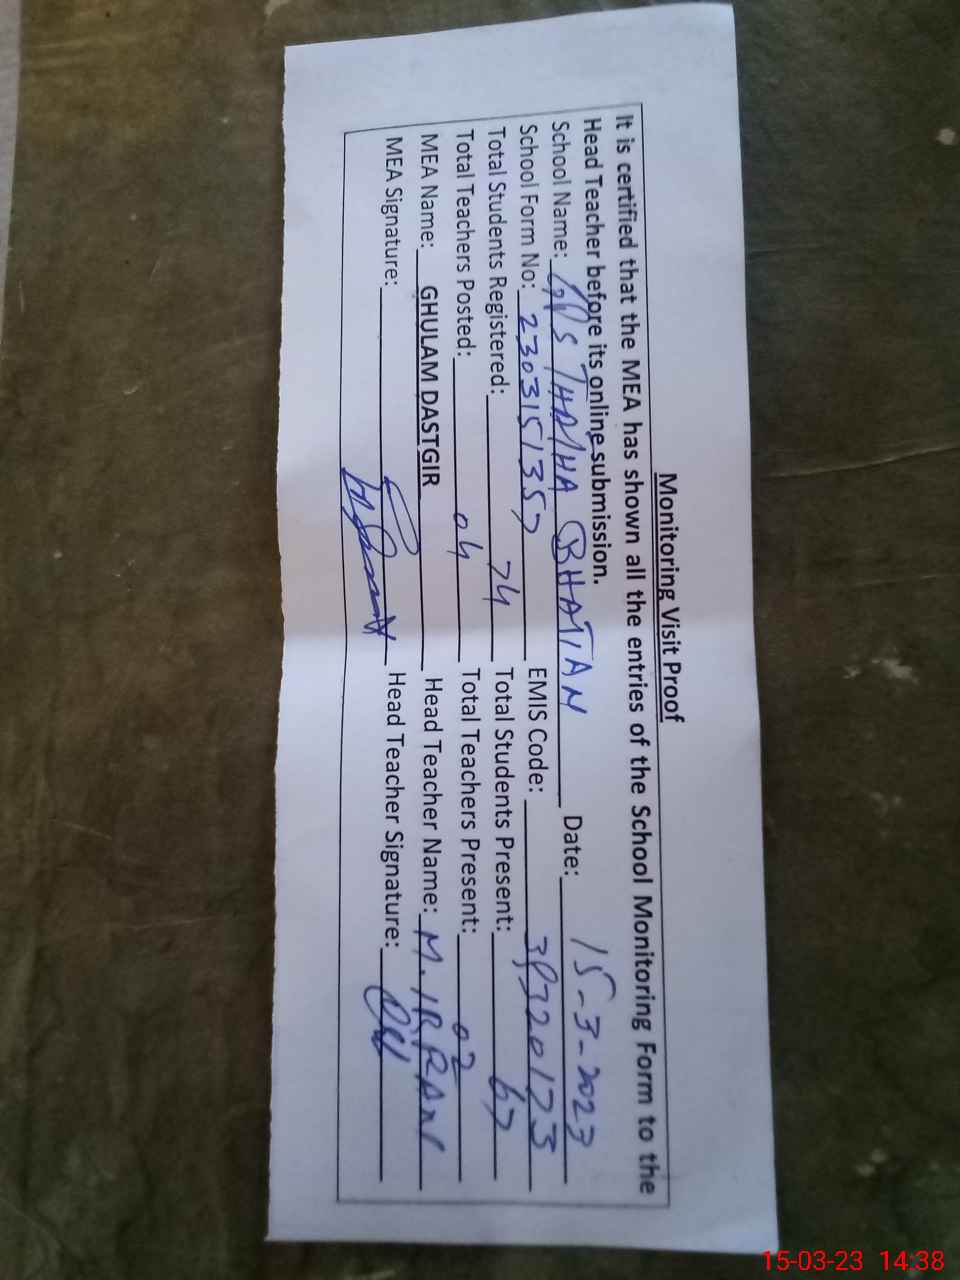 Monitoring Visit Proof
It is certified that the MEA has shown all the entries of the School Monitoring Form to the
Head Teacher before its online submission.
School Name: GPS THATHA BHATIAN Date: 15-3-2023
School Form No: 2303151357 EMIS Code: 37320123
Total Students Registered: 74 Total Students Present: 67
Total Teachers Posted: 04 Total Teachers Present: 02
MEA Name: GHULAM DASTGIR Head Teacher Name: M.
MEA Signature: Head Teacher Signature:
15-03-23 14:38